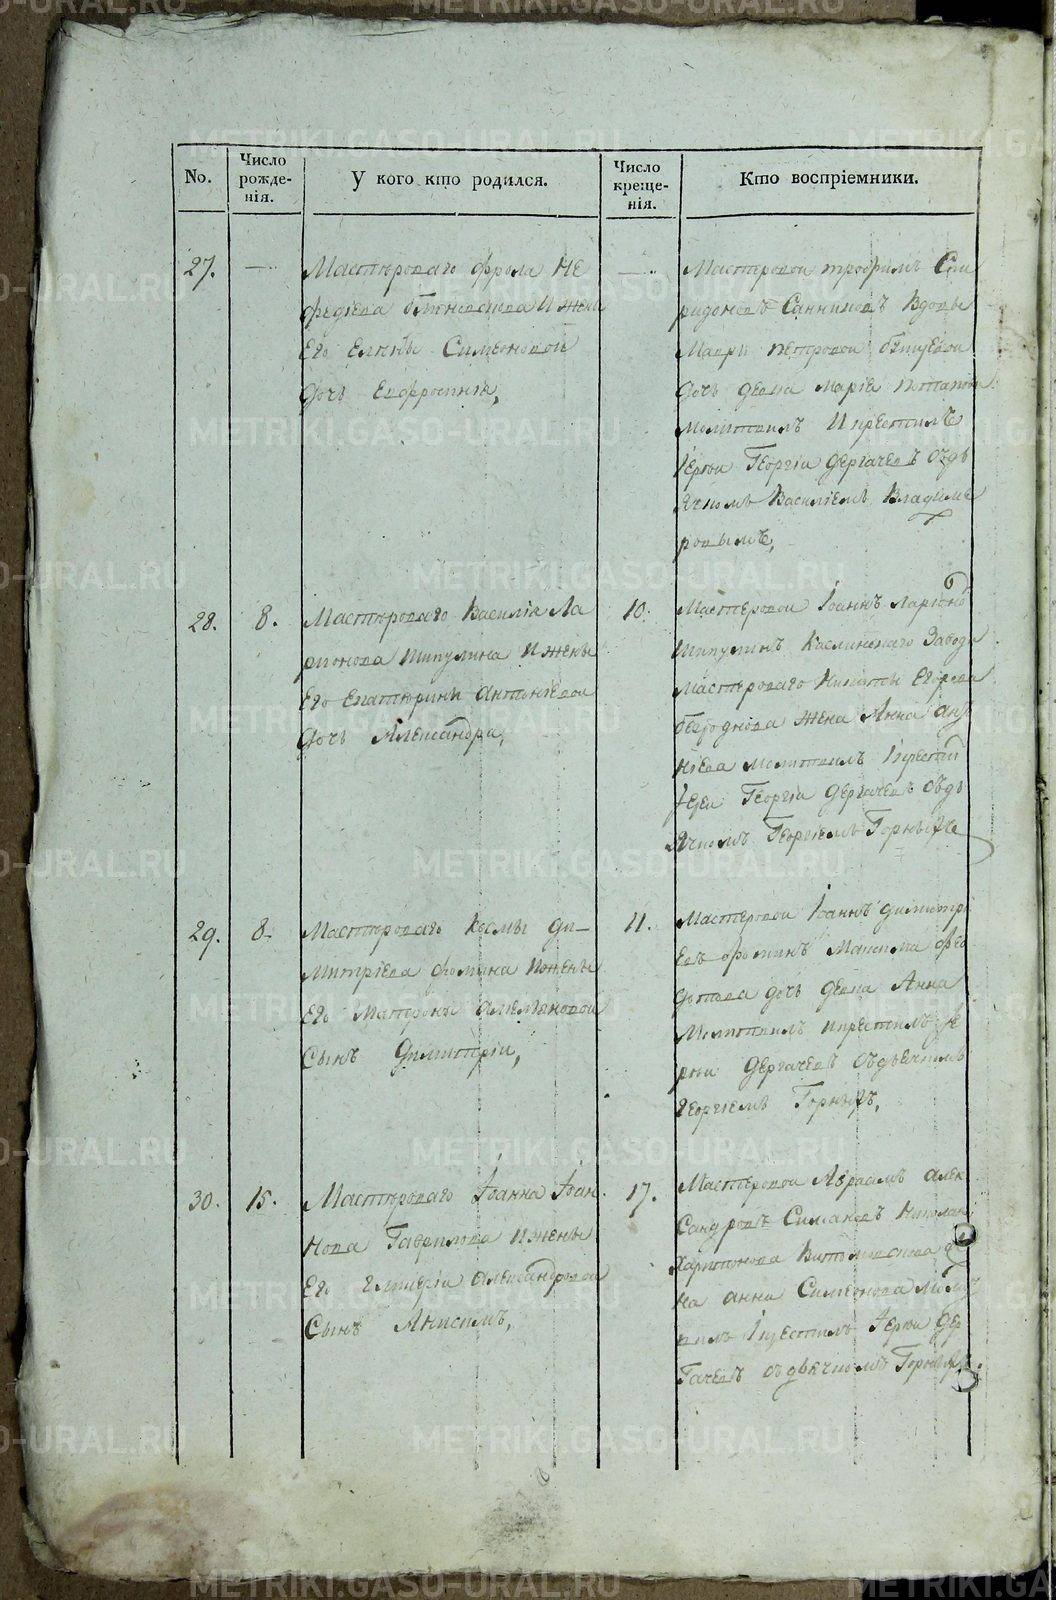 No.
Число рожде-нія.
У кого кто родился.
Число креще-нія.
Кто воспріемники.
27.
—
Мастероваго Фрола Не
федіева Блиновскова и жены
Его Елены Симеоновой
дочь Евфросинія,
—
Мастеровой Трофимъ Спи
ридоновъ Санниковъ Вдовы
Мавры Петровой
дочь девка Марія
молитвилъ и крестилъ
Іерей Георгіи Дергачевъ съ дь
ячкомъ Василіемъ Владиме
ровымъ,
28.
8.
Мастероваго Василія Ла
ріонова Шипулина и жены
Его Екатерины Антоніевой
дочь Александра,
10.
Мастеровой Іоаннъ Ларіоно
Шипулинъ Каслинскаго Завода
мастероваго Никиты Егорова
жена Анна
молитвилъ крести
Іерей Георгіи Дергачевъ съ дь
ячкомъ Георгіемъ Горныхъ
29.
8.
Мастероваго Космы Ди-
митріева Фомина и жены
Его Матроны
Сынъ Димитріи,
11.
Мастеровой Іоаннъ Димитрі
евъ Фоминъ Максима Фео
дотова дочь девка Анна
молитвилъ и крестилъ Іе
рей Дергачевъ съ дьячкомъ
Георгіемъ Горныхъ,
30.
15.
Мастероваго Іоанна Іоан
нова Гаврилова и жены
Его Гликеріи Александровой
Сынъ Анисимъ,
17.
Мастеровой Авраамъ Алек
сандровъ Симановъ Никола
Харитонова
на Анна Симеонова молит
вилъ крестилъ Іерей Дер
гачевъ съ дьячкомъ Горныхъ.